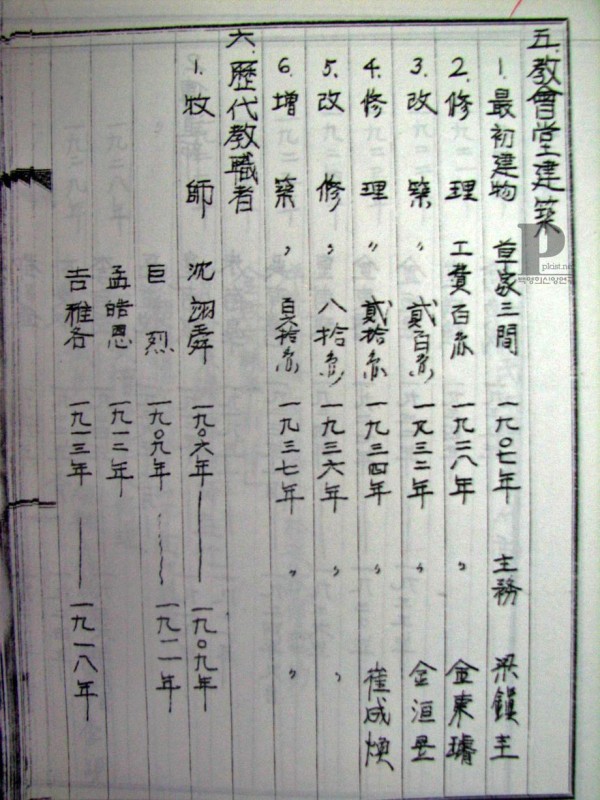 五. 教會堂建築
1. 最初建物 草家三間 一九〇七年 主務 梁鎭主
2. 修理 工費百원 一九二八年 〃 金東璿
3. 改築 〃 貳百원 一九三二年 〃 金洹昱
4. 修理 〃 貳拾원 一九三四年 〃 崔成煥
5. 改修 〃 八拾원 一九三六年 〃
6. 增築 〃 百拾원 一九三七年 〃 〃
六. 歷代教職者
1. 牧師 沈翊舜 一九〇六年——一九〇九年
巨烈 一九〇九年——一九一一年
孟皓恩 一九一二年
吉雅各 一九一三年——一九一八年
pkist.net